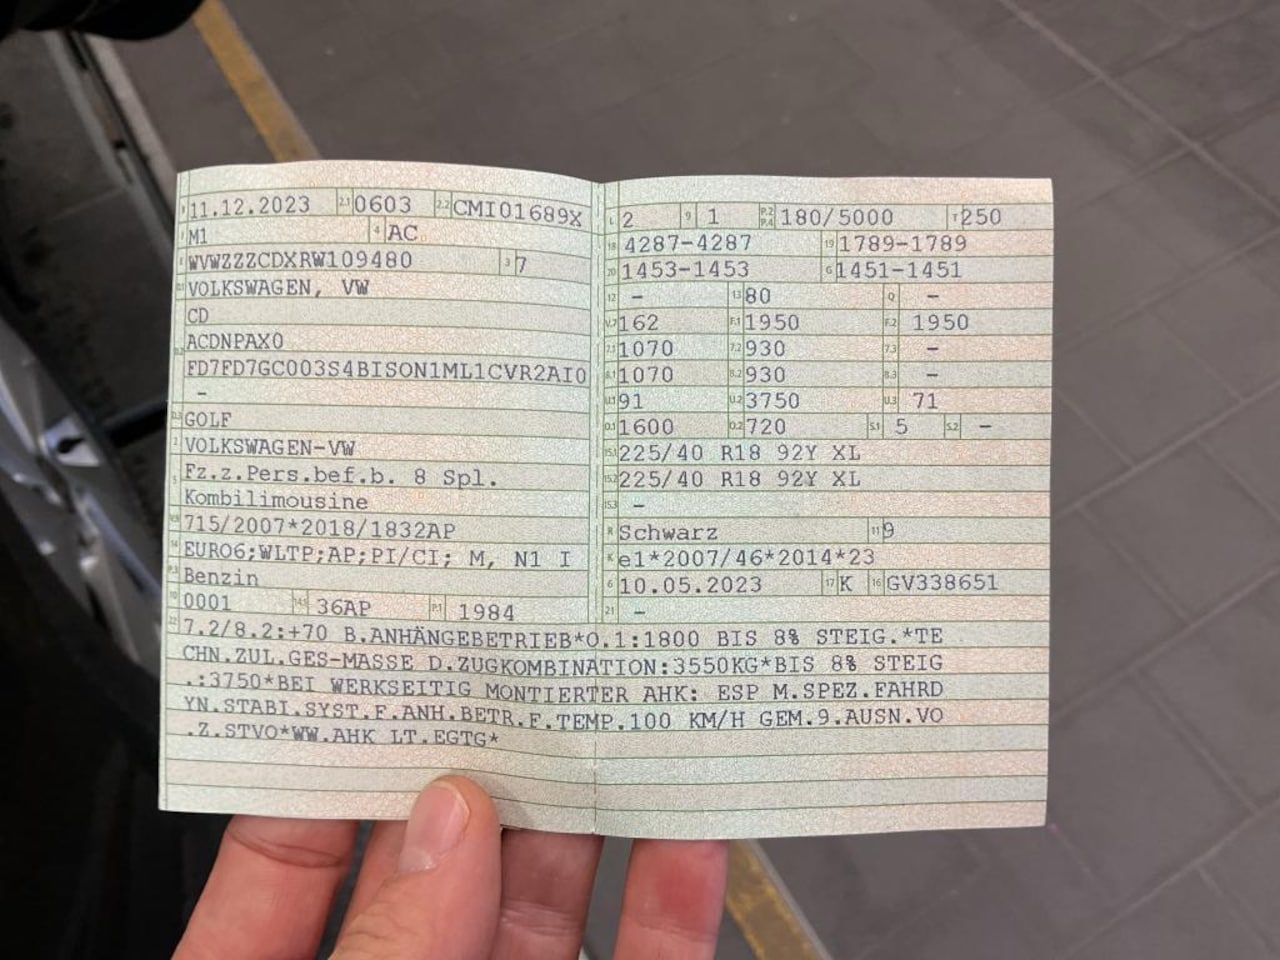 B 11.12.2023 2.1 0603 2.2 CMI01689X
J M1 4 AC
E WVWZZZCDXRW109480 3 7
D.1 VOLKSWAGEN, VW
CD
D.2 ACDNPAX0
FD7FD7GC003S4BISON1ML1CVR2AI0
-
D.3 GOLF
2 VOLKSWAGEN-VW
5 Fz.z.Pers.bef.b. 8 Spl.
Kombilimousine
V.9 715/2007*2018/1832AP
14 EURO6;WLTP;AP;PI/CI; M, N1 I
P.3 Benzin
10 0001 14.1 36AP P.1 1984
L 2 9 1 P.2 P.4 180/5000 T 250
18 4287-4287 19 1789-1789
20 1453-1453 G 1451-1451
12 - 13 80 Q -
V.7 162 F.1 1950 F.2 1950
7.1 1070 7.2 930 7.3 -
8.1 1070 8.2 930 8.3 -
U.1 91 U.2 3750 U.3 71
O.1 1600 O.2 720 S.1 5 S.2 -
15.1 225/40 R18 92Y XL
15.2 225/40 R18 92Y XL
15.3 -
R Schwarz 11 9
K e1*2007/46*2014*23
6 10.05.2023 17 K 16 GV338651
21 -
22 7.2/8.2:+70 B.ANHÄNGEBETRIEB*O.1:1800 BIS 8% STEIG.*TE
CHN.ZUL.GES-MASSE D.ZUGKOMBINATION:3550KG*BIS 8% STEIG
.:3750*BEI WERKSEITIG MONTIERTER AHK: ESP M.SPEZ.FAHRD
YN.STABI.SYST.F.ANH.BETR.F.TEMP.100 KM/H GEM.9.AUSN.VO
.Z.STVO*WW.AHK LT.EGTG*